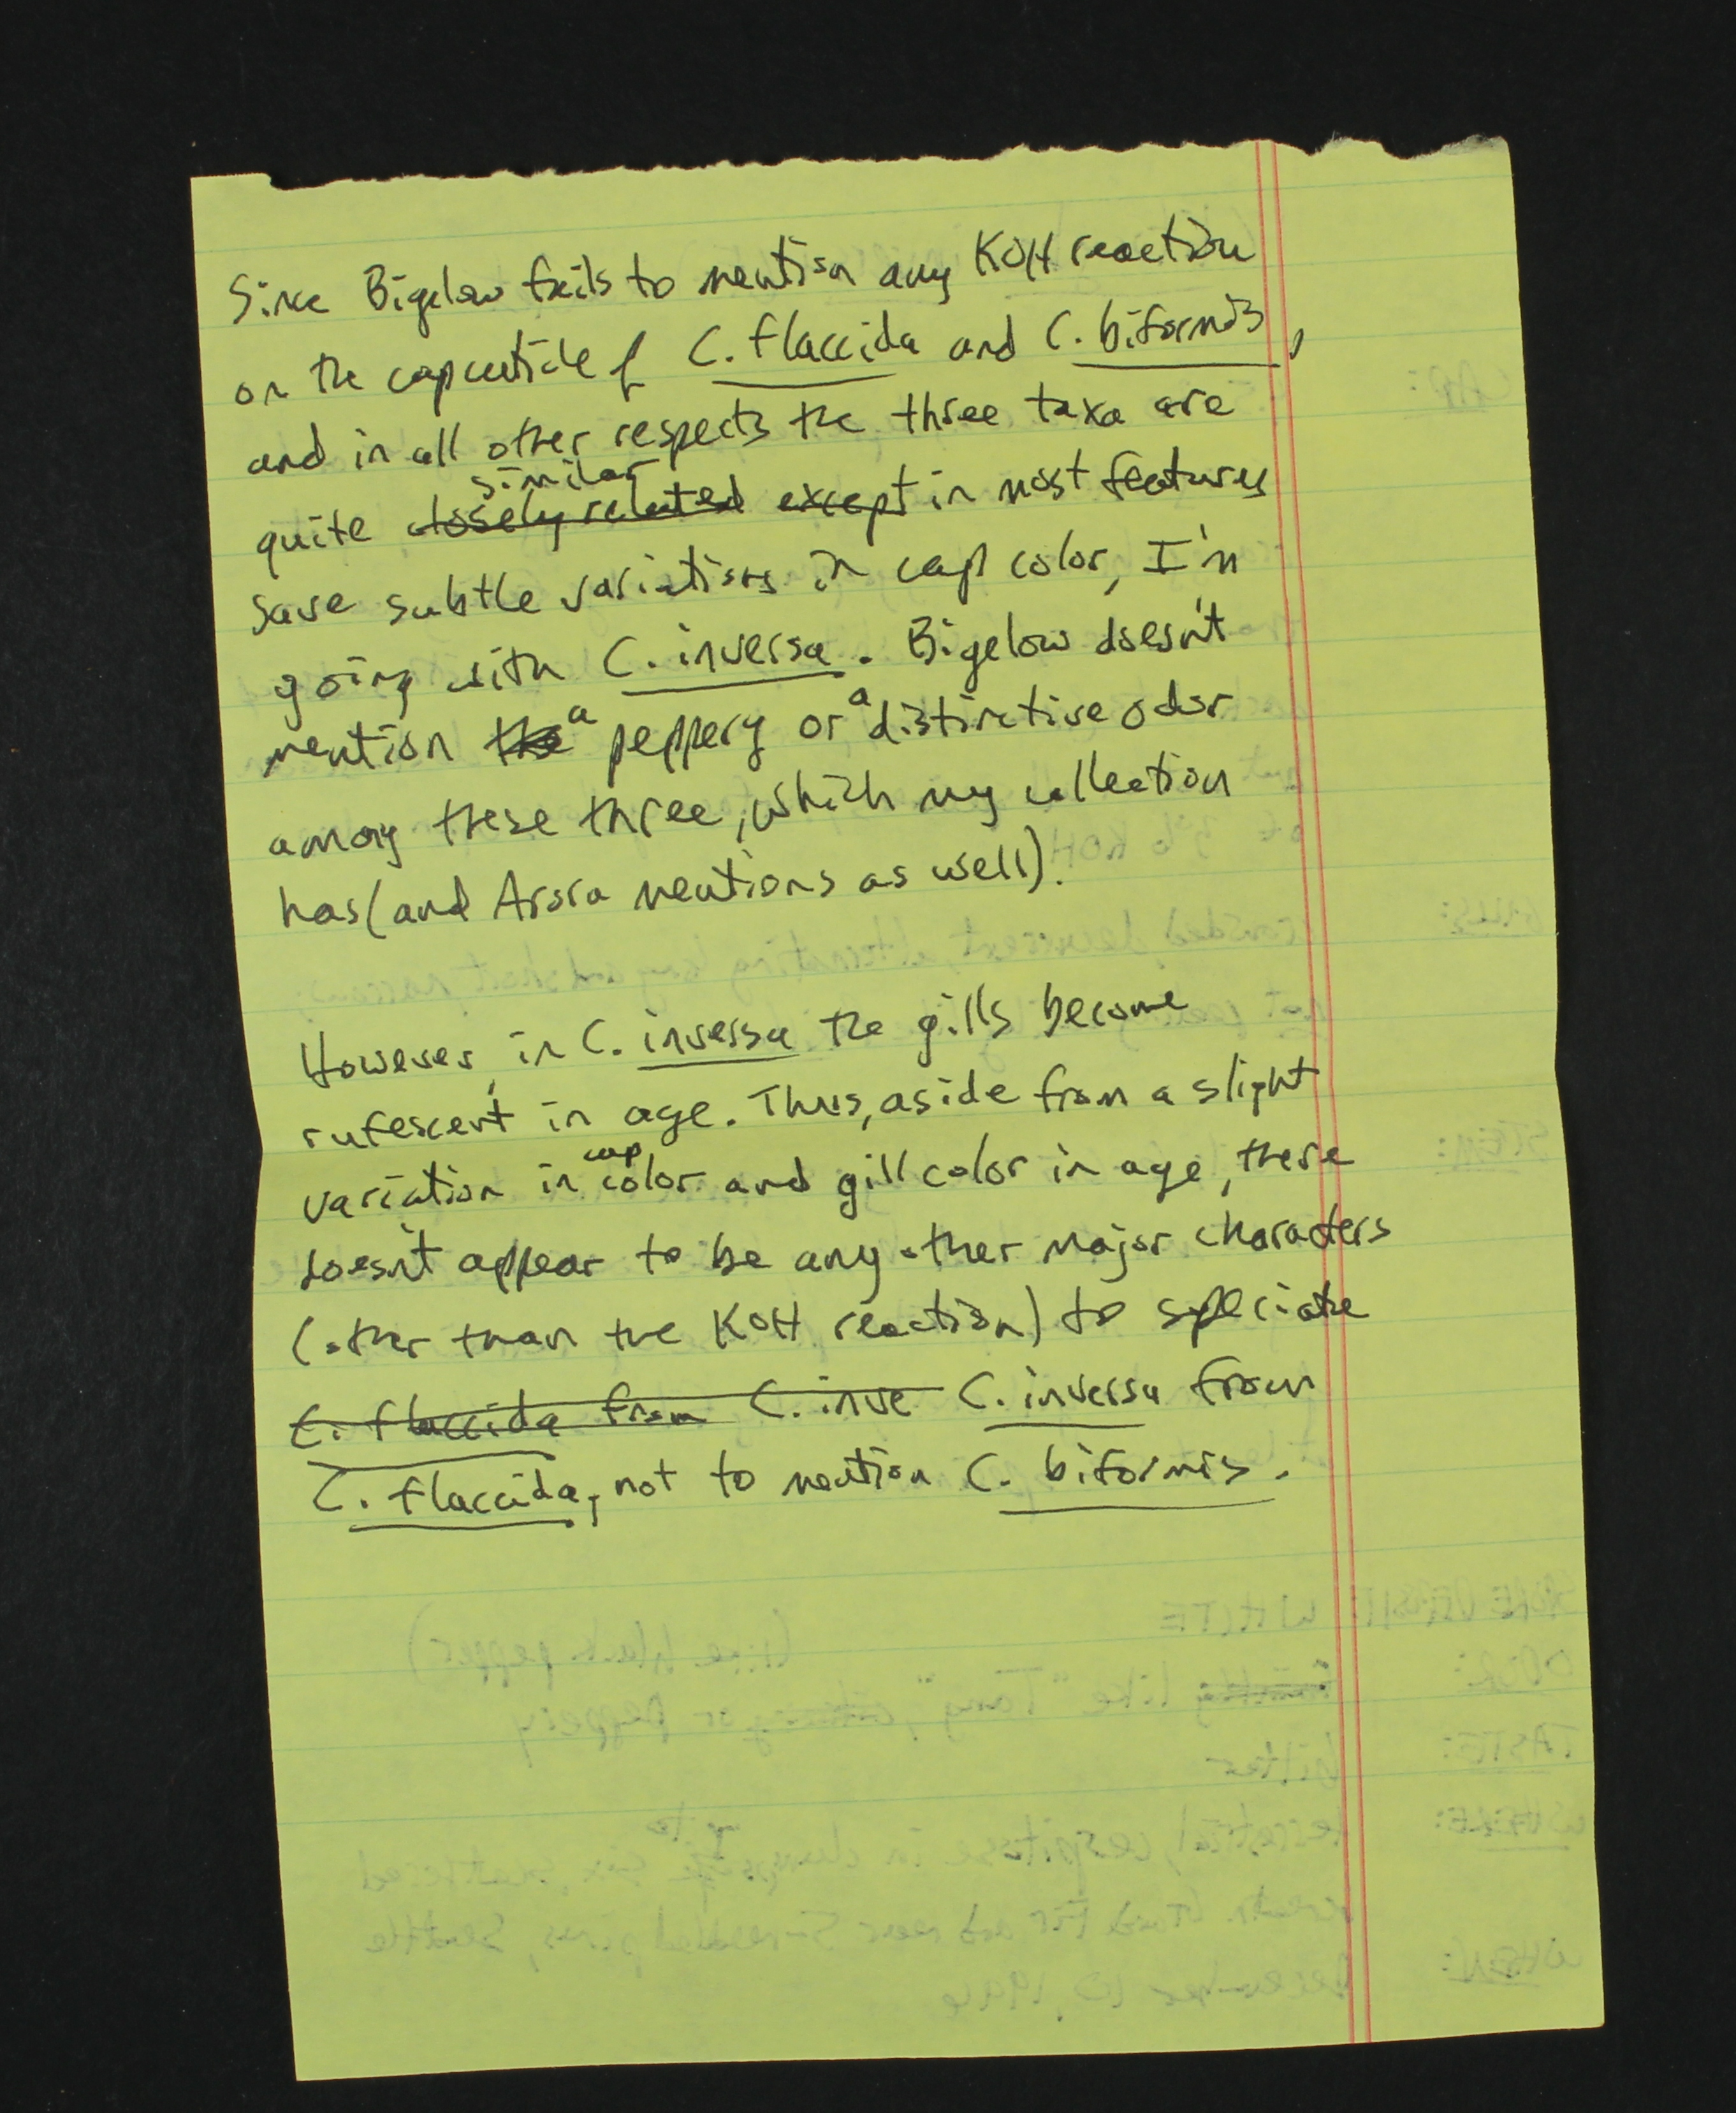 Since Bigelow fails to mention any KOH reaction
on the cap cuticle of C. flaccida and C. biformis,
and in all other respects the three taxa are
similar
quite closely related except in most features
save subtle variations in cap color, I'm
going with C. inversa. Bigelow doesn't
mention the a peppery or a distinctive odor
among these three, which my collection
has (and Arora mentions as well).
However, in C. inversa the gills become
rufescent in age. Thus, aside from a slight
variation in cap color and gill color in age, there
doesn't appear to be any other major characters
(other than the KOH reaction) to speciate
C. flaccida from C. inve C. inversa from
C. flaccida, not to mention C. biformis.